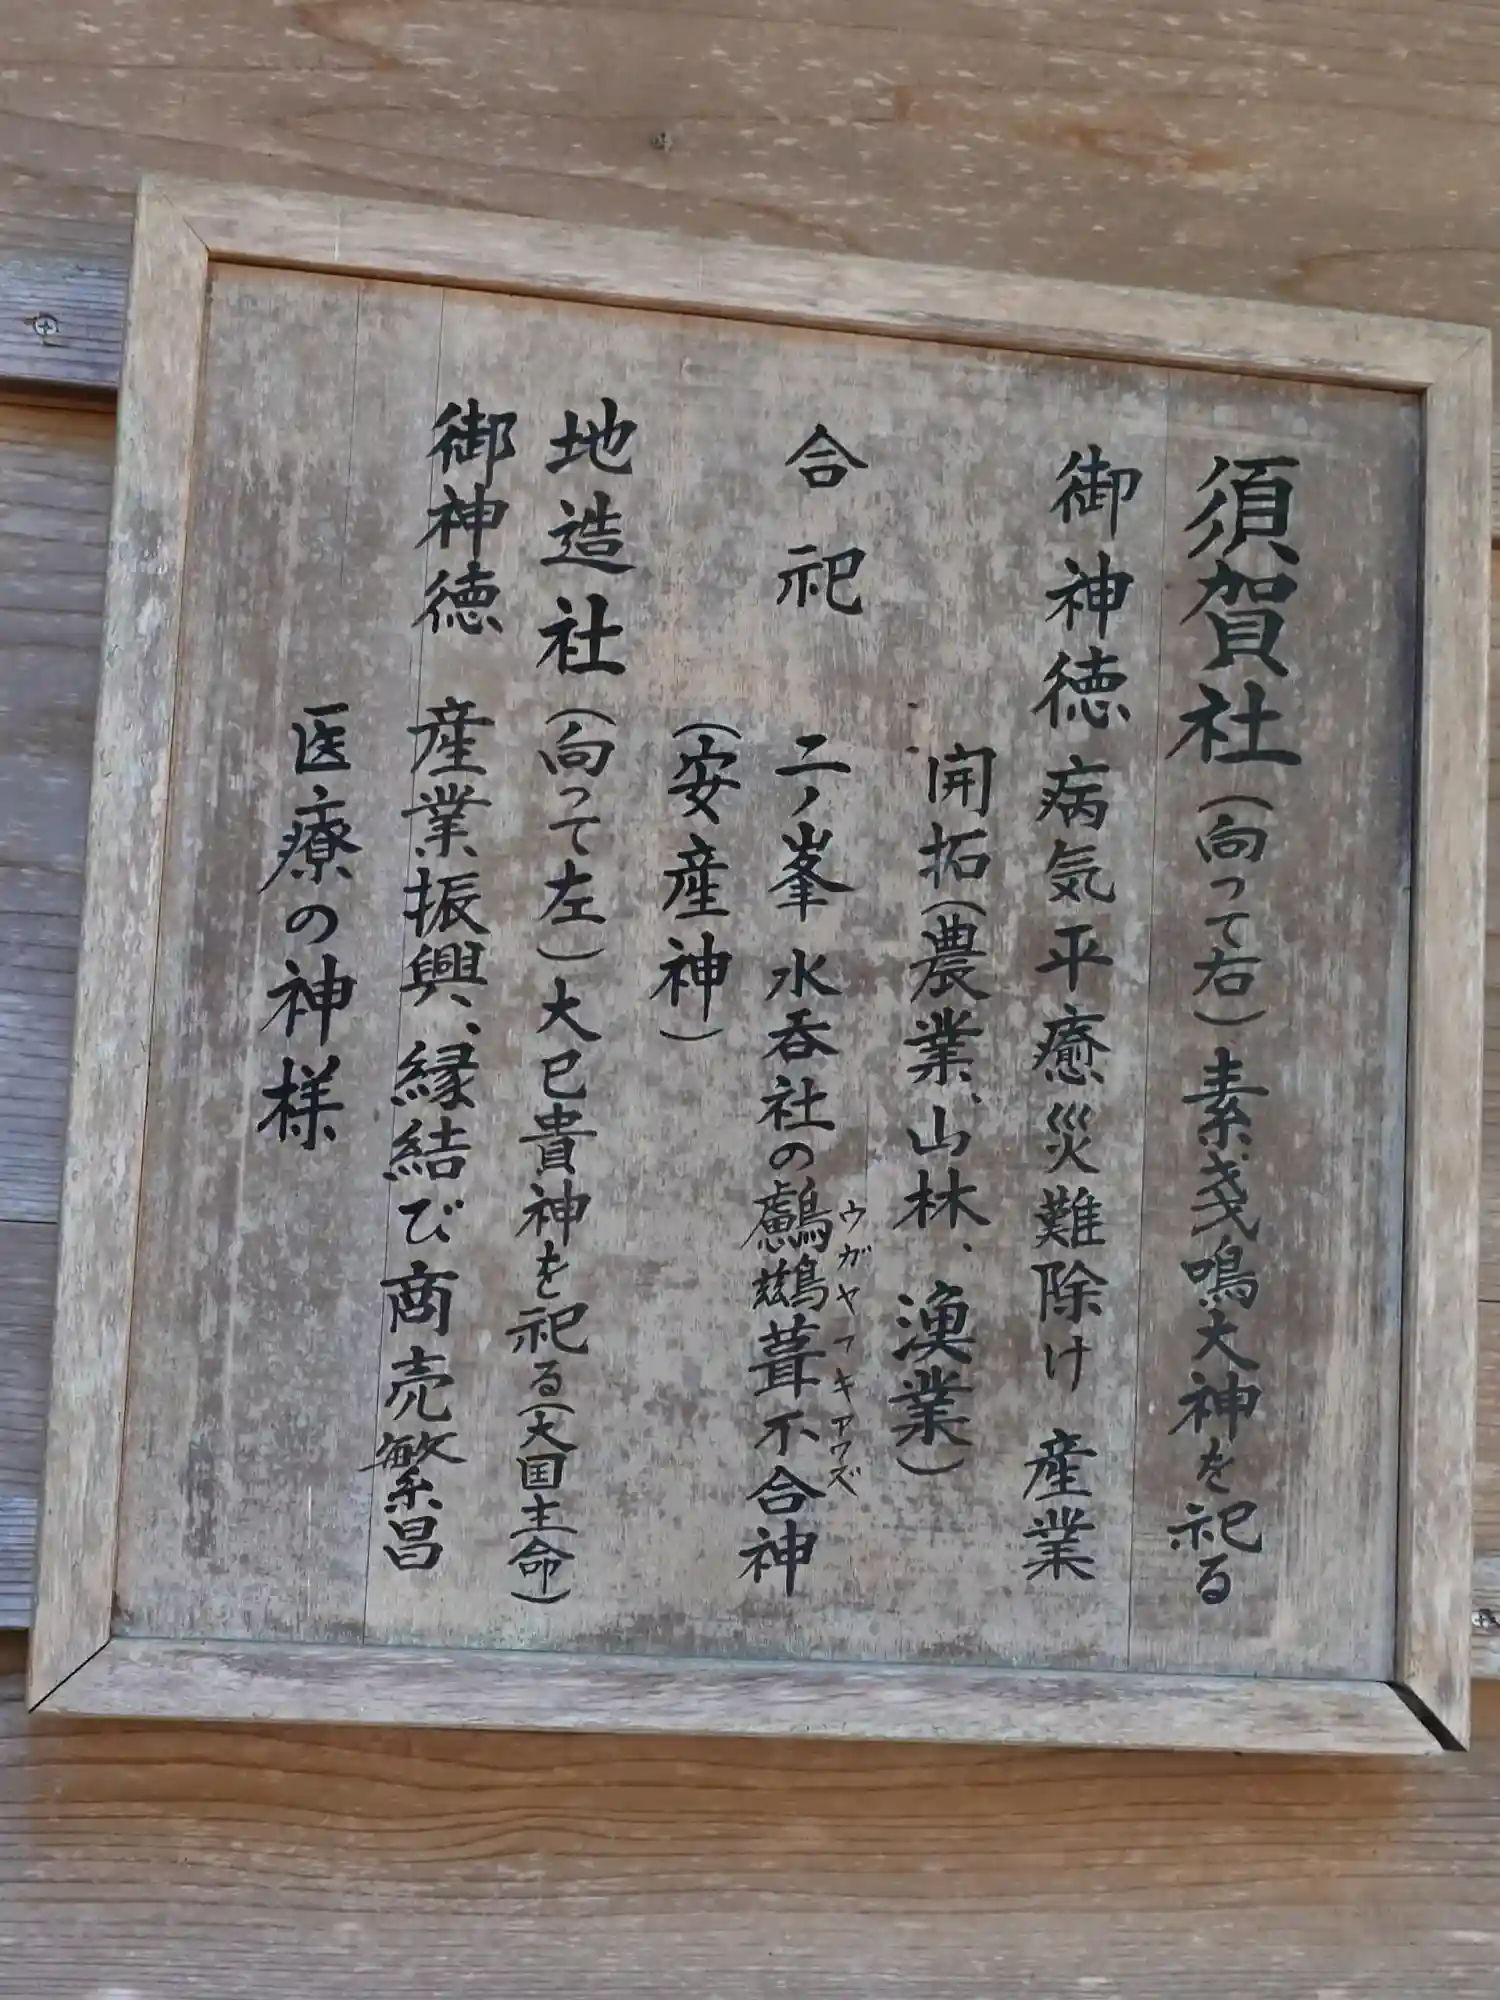 須賀社(向って右)素戔鳴大神を祀る
御神徳 病気平癒災難除け 産業
開拓(農業、山林、漁業)
合祀 二ノ峯 水呑社の鸕鷀葺不合神
ウガヤフキアワズ
(安産神)
地造社(向って左)大巳貴神を祀る(大国主命)
御神徳 産業振興、縁結び商売繁昌
医療の神様